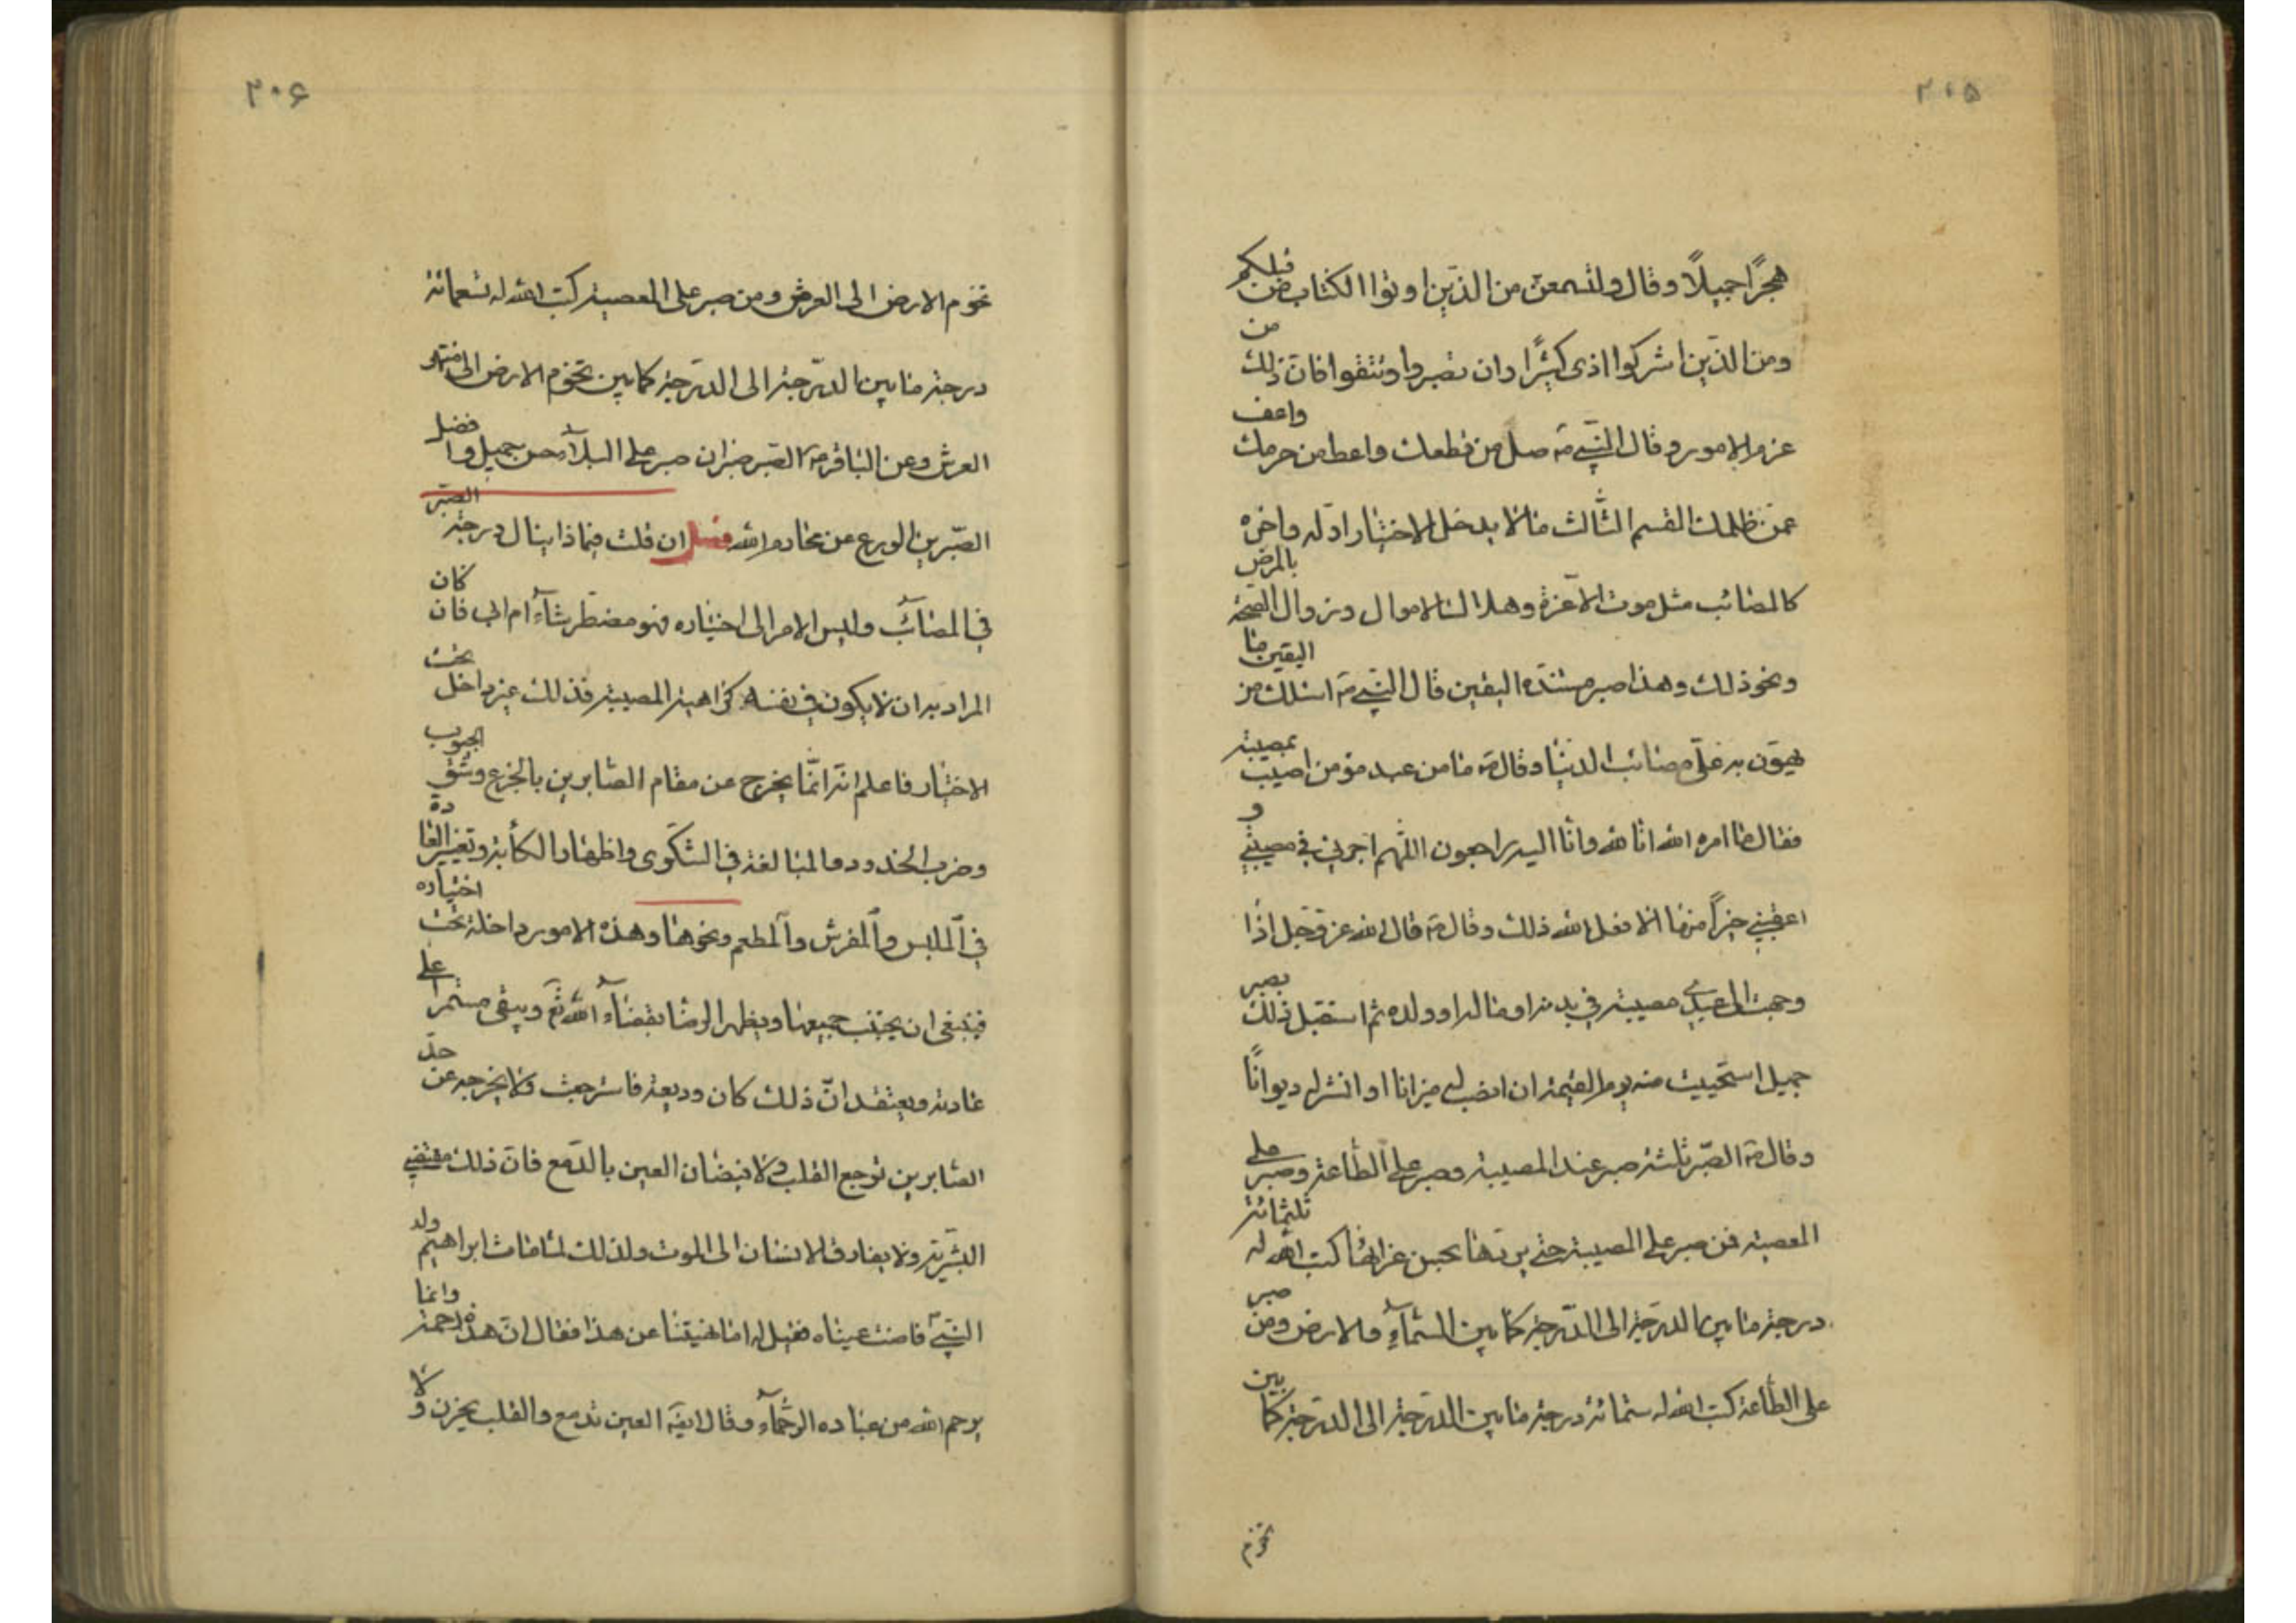 ٢٠٥
هجرًا جميلًا وقال ولتسمعن من الذين اوتوا الكتاب من قبلكم
ومن الذين اشركوا اذى كثيرًا وان تصبروا وتتقوا فان ذلك من
عزم الامور وقال النبي صل من قطعك واعط من حرمك واعف
عمّن ظلمك القسم الثالث ما لا يدخل الاختيار اوّله واخره
كالمصائب مثل موت الاعزة وهلاك الاموال وزوال الصحة بالمرض
ونحو ذلك وهذا صبر مستنده اليقين قال النبي اسئلك من اليقين ما
يهون به علىّ مصائب الدنيا وقال ما من عبد مؤمن اصيب بمصيبة
فقال كما امره الله انا لله وانا اليه راجعون اللهم اجرني في مصيبتي و
اعقبني خيرًا منها الا فعل الله ذلك وقال قال الله عز وجل اذا
وجهت الى عبدي مصيبة في بدنه او ماله او ولده ثم استقبل ذلك بصبر
جميل استحييت منه يوم القيمة ان انصب له ميزانا او انشر له ديوانًا
وقال الصّبر ثلثة صبر عند المصيبة وصبر على الطّاعة وصبر على
المعصية فمن صبر على المصيبة حتى يردها بحسن عزائها كتب الله له ثلثمائة
درجة ما بين الدرجة الى الدرجة كما بين السّمآء والارض ومن صبر
على الطّاعة كتب الله له ستمائة درجة ما بين الدرجة الى الدرجة كما بين
تخوم
٢٠۶
تخوم الارض الى العرش ومن صبر على المعصية كتب الله له تسعمائة
درجة ما بين الدّرجة الى الدرجة كما بين تخوم الارض الى منتهى
العرش وعن الباقر الصّبر صبران صبر على البلآء حسن جميل وافضل
الصّبرين الورع عن محارم الله فصل ان قلت فيماذا ينال درجة الصّبر
في المصائب وليس الامر الى اختياره فهو مضطر شآء ام ابى فان كان
المراد به ان لا يكون في نفسه كراهية المصيبة فذلك غير داخل تحت
الاختيار فاعلم انه انّما يخرج عن مقام الصّابرين بالجزع وشق الجيوب
وضرب الخدود والمبالغة في الشكوى واظهار الكأبة وتغيير العادة
في الملبس والمفرش والمطعم ونحوها وهذه الامور داخلة تحت اختياره
فينبغى ان يجتنب جميعها ويظهر الرضا بقضآء الله تع ويبقى مستمرا على
عادته ويعتقد انّ ذلك كان وديعة فاسترجعت ولا يخرجه عن حدّ
الصّابرين توجع القلب ولا فيضان العين بالدّمع فان ذلك مقتضى
البشريّة ولا يفارق الانسان الى الموت ولذلك لما مات ابراهيم ولد
النبي فاضت عيناه فقيل له اما نهيتنا عن هذا فقال ان هذه رحمة وانما
يرحم الله من عباده الرحمآء وقال ايضًا العين تدمع والقلب يحزن ولا